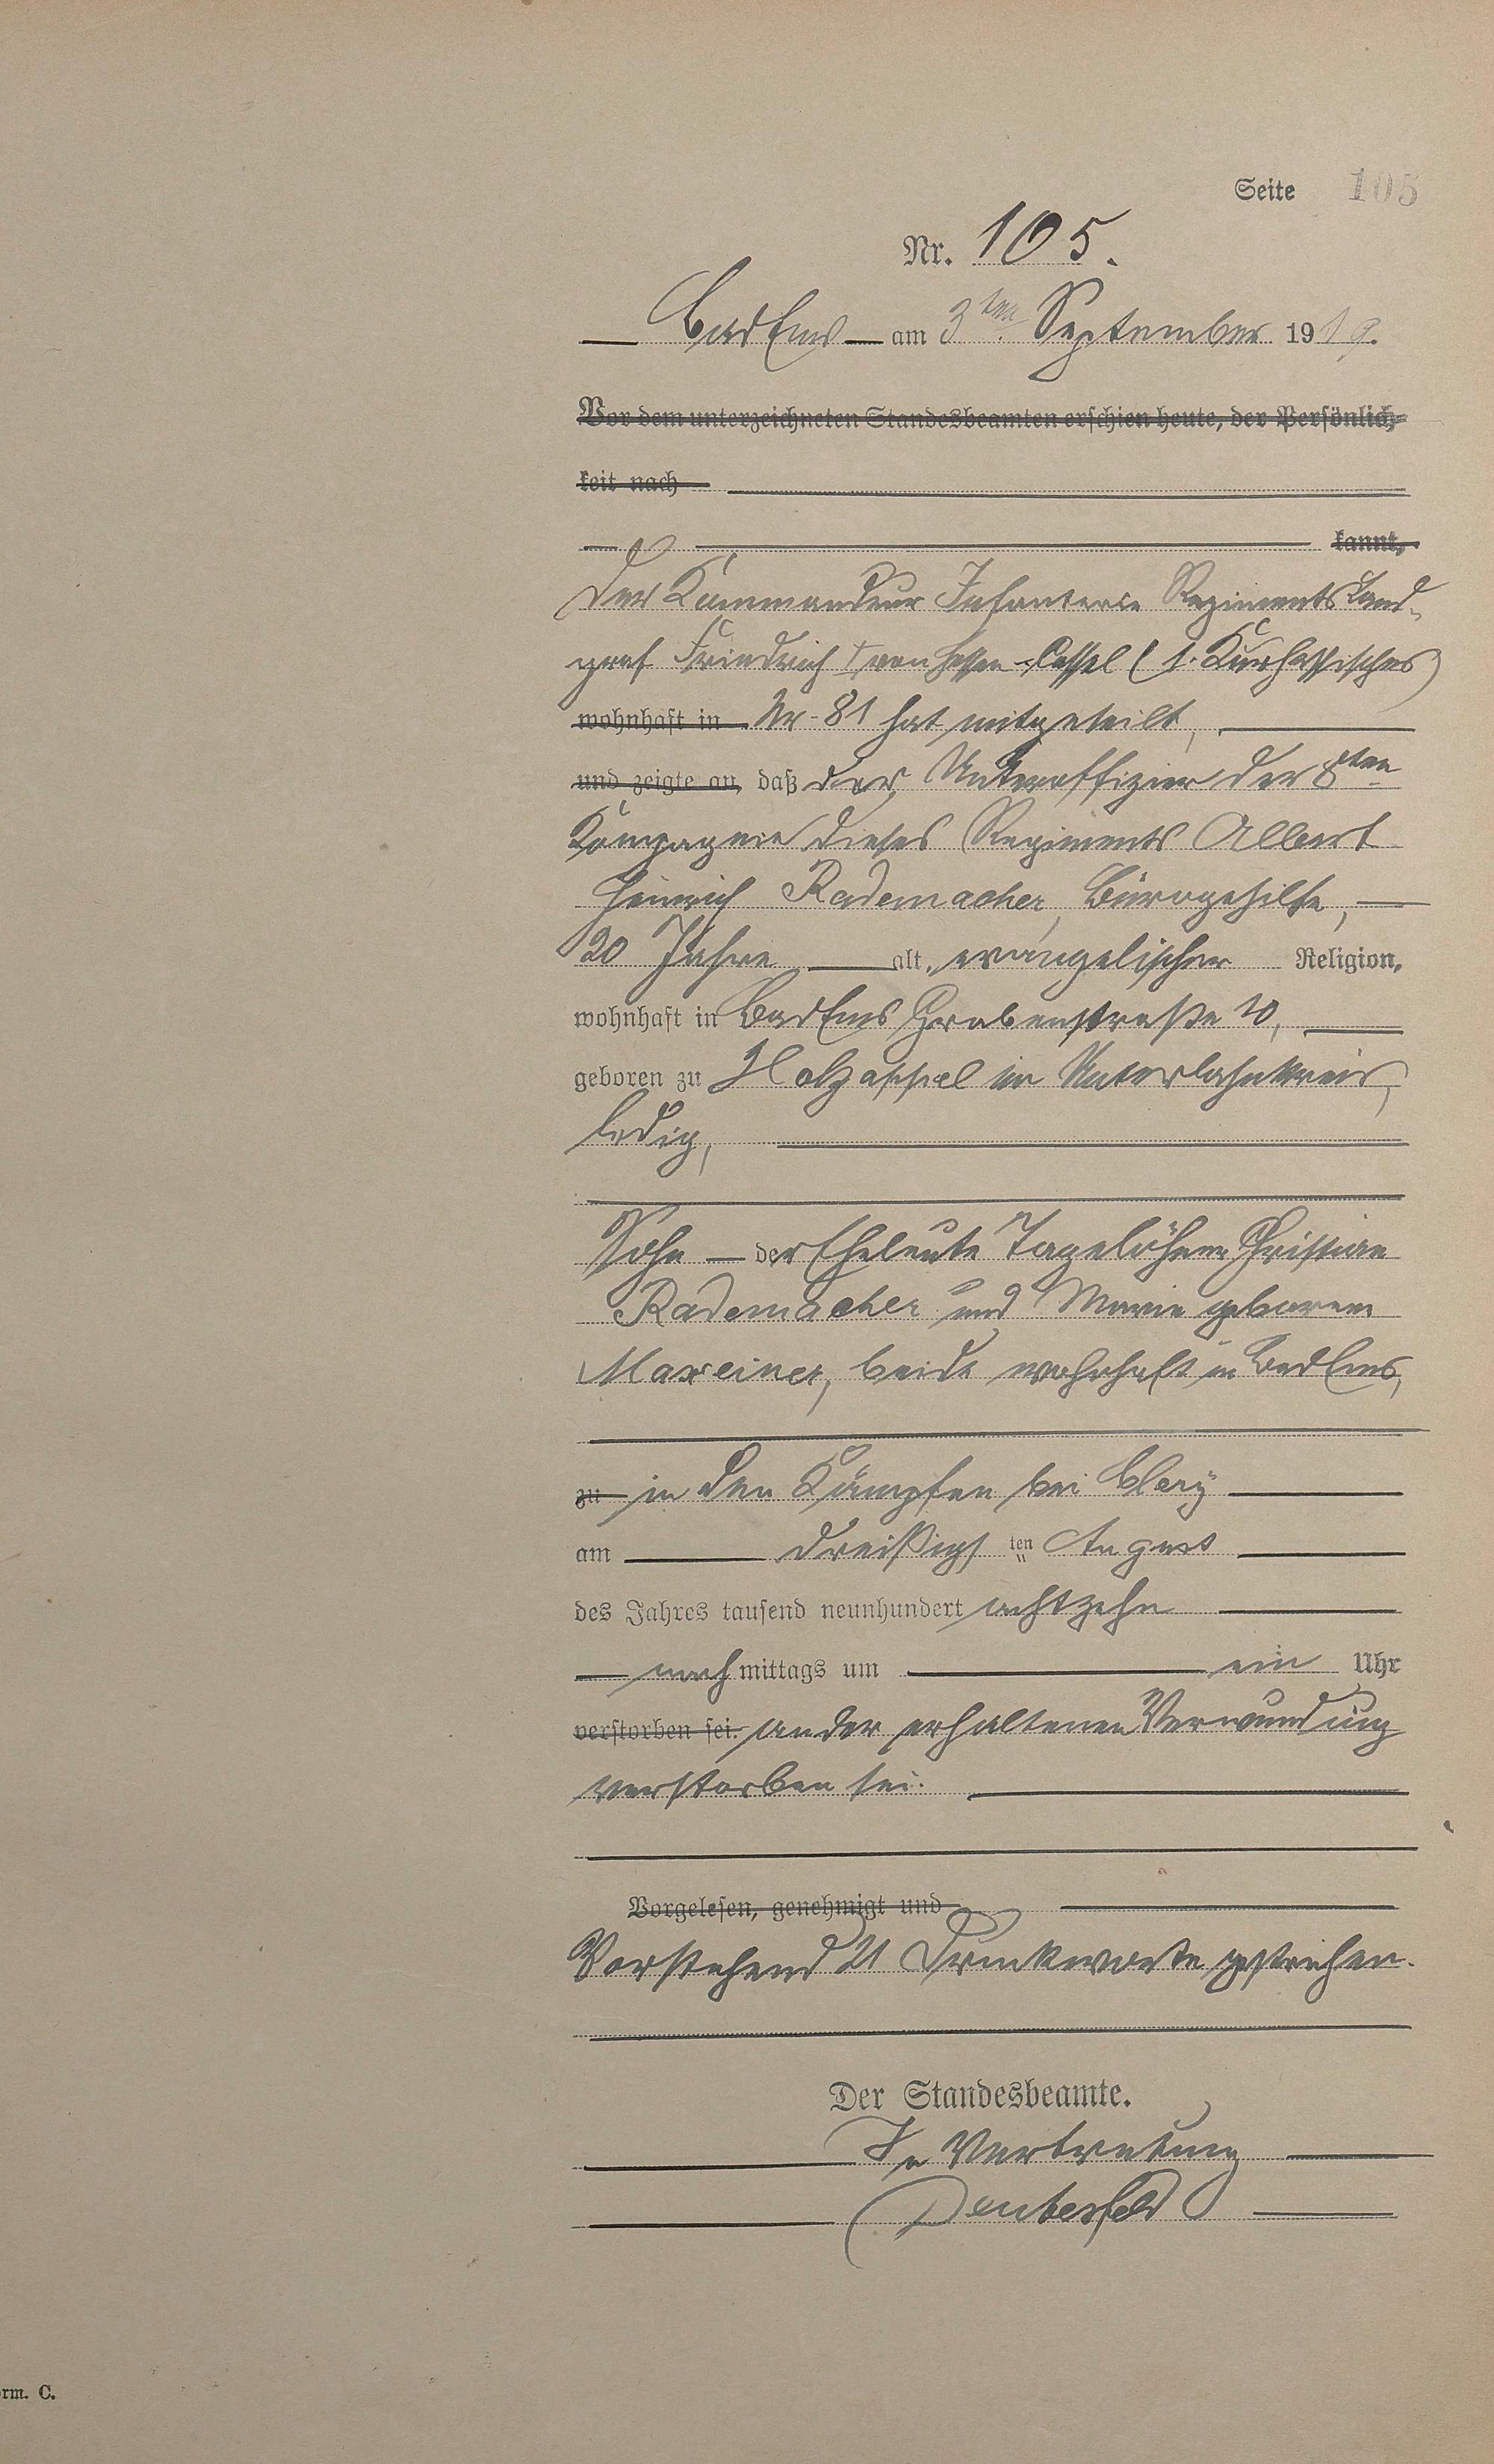 Seite 105
Nr. 105.
Bad Ems am 3ten September 1919.
Vor dem unterzeichneten Standesbeamten erschien heute, der Persönlich-
keit nach
kannt,
Der Kommandeur Infanterie Regiments Land-
graf Friedrich I von Hessen-Cassel (1. Kurhessisches)
wohnhaft in Nr. 81 hat mitgeteilt,
und zeigte an, daß der Unteroffizier der 8ten
Kompagnie dieses Regiments Albert
Heinrich Rademacher, Bürogehilfe,
20 Jahre alt, evangelischer Religion,
wohnhaft in Bad Ems Grabenstraße 20,
geboren zu Holzappel im Unterlahnkreis,
ledig,
Sohn der Eheleute Tagelöhner Christian
Rademacher und Marie geborene
Maxeiner, beide wohnhaft in Bad Ems,
zu in den Kämpfen bei Clery
am dreißigsten August
des Jahres tausend neunhundert achtzehn
nachmittags um ein Uhr
verstorben sei. an der erhaltenen Verwundung
verstorben sei.
Vorgelesen, genehmigt und
Vorstehend 21 Druckworte gestrichen.
Der Standesbeamte.
In Vertretung
rm. C.